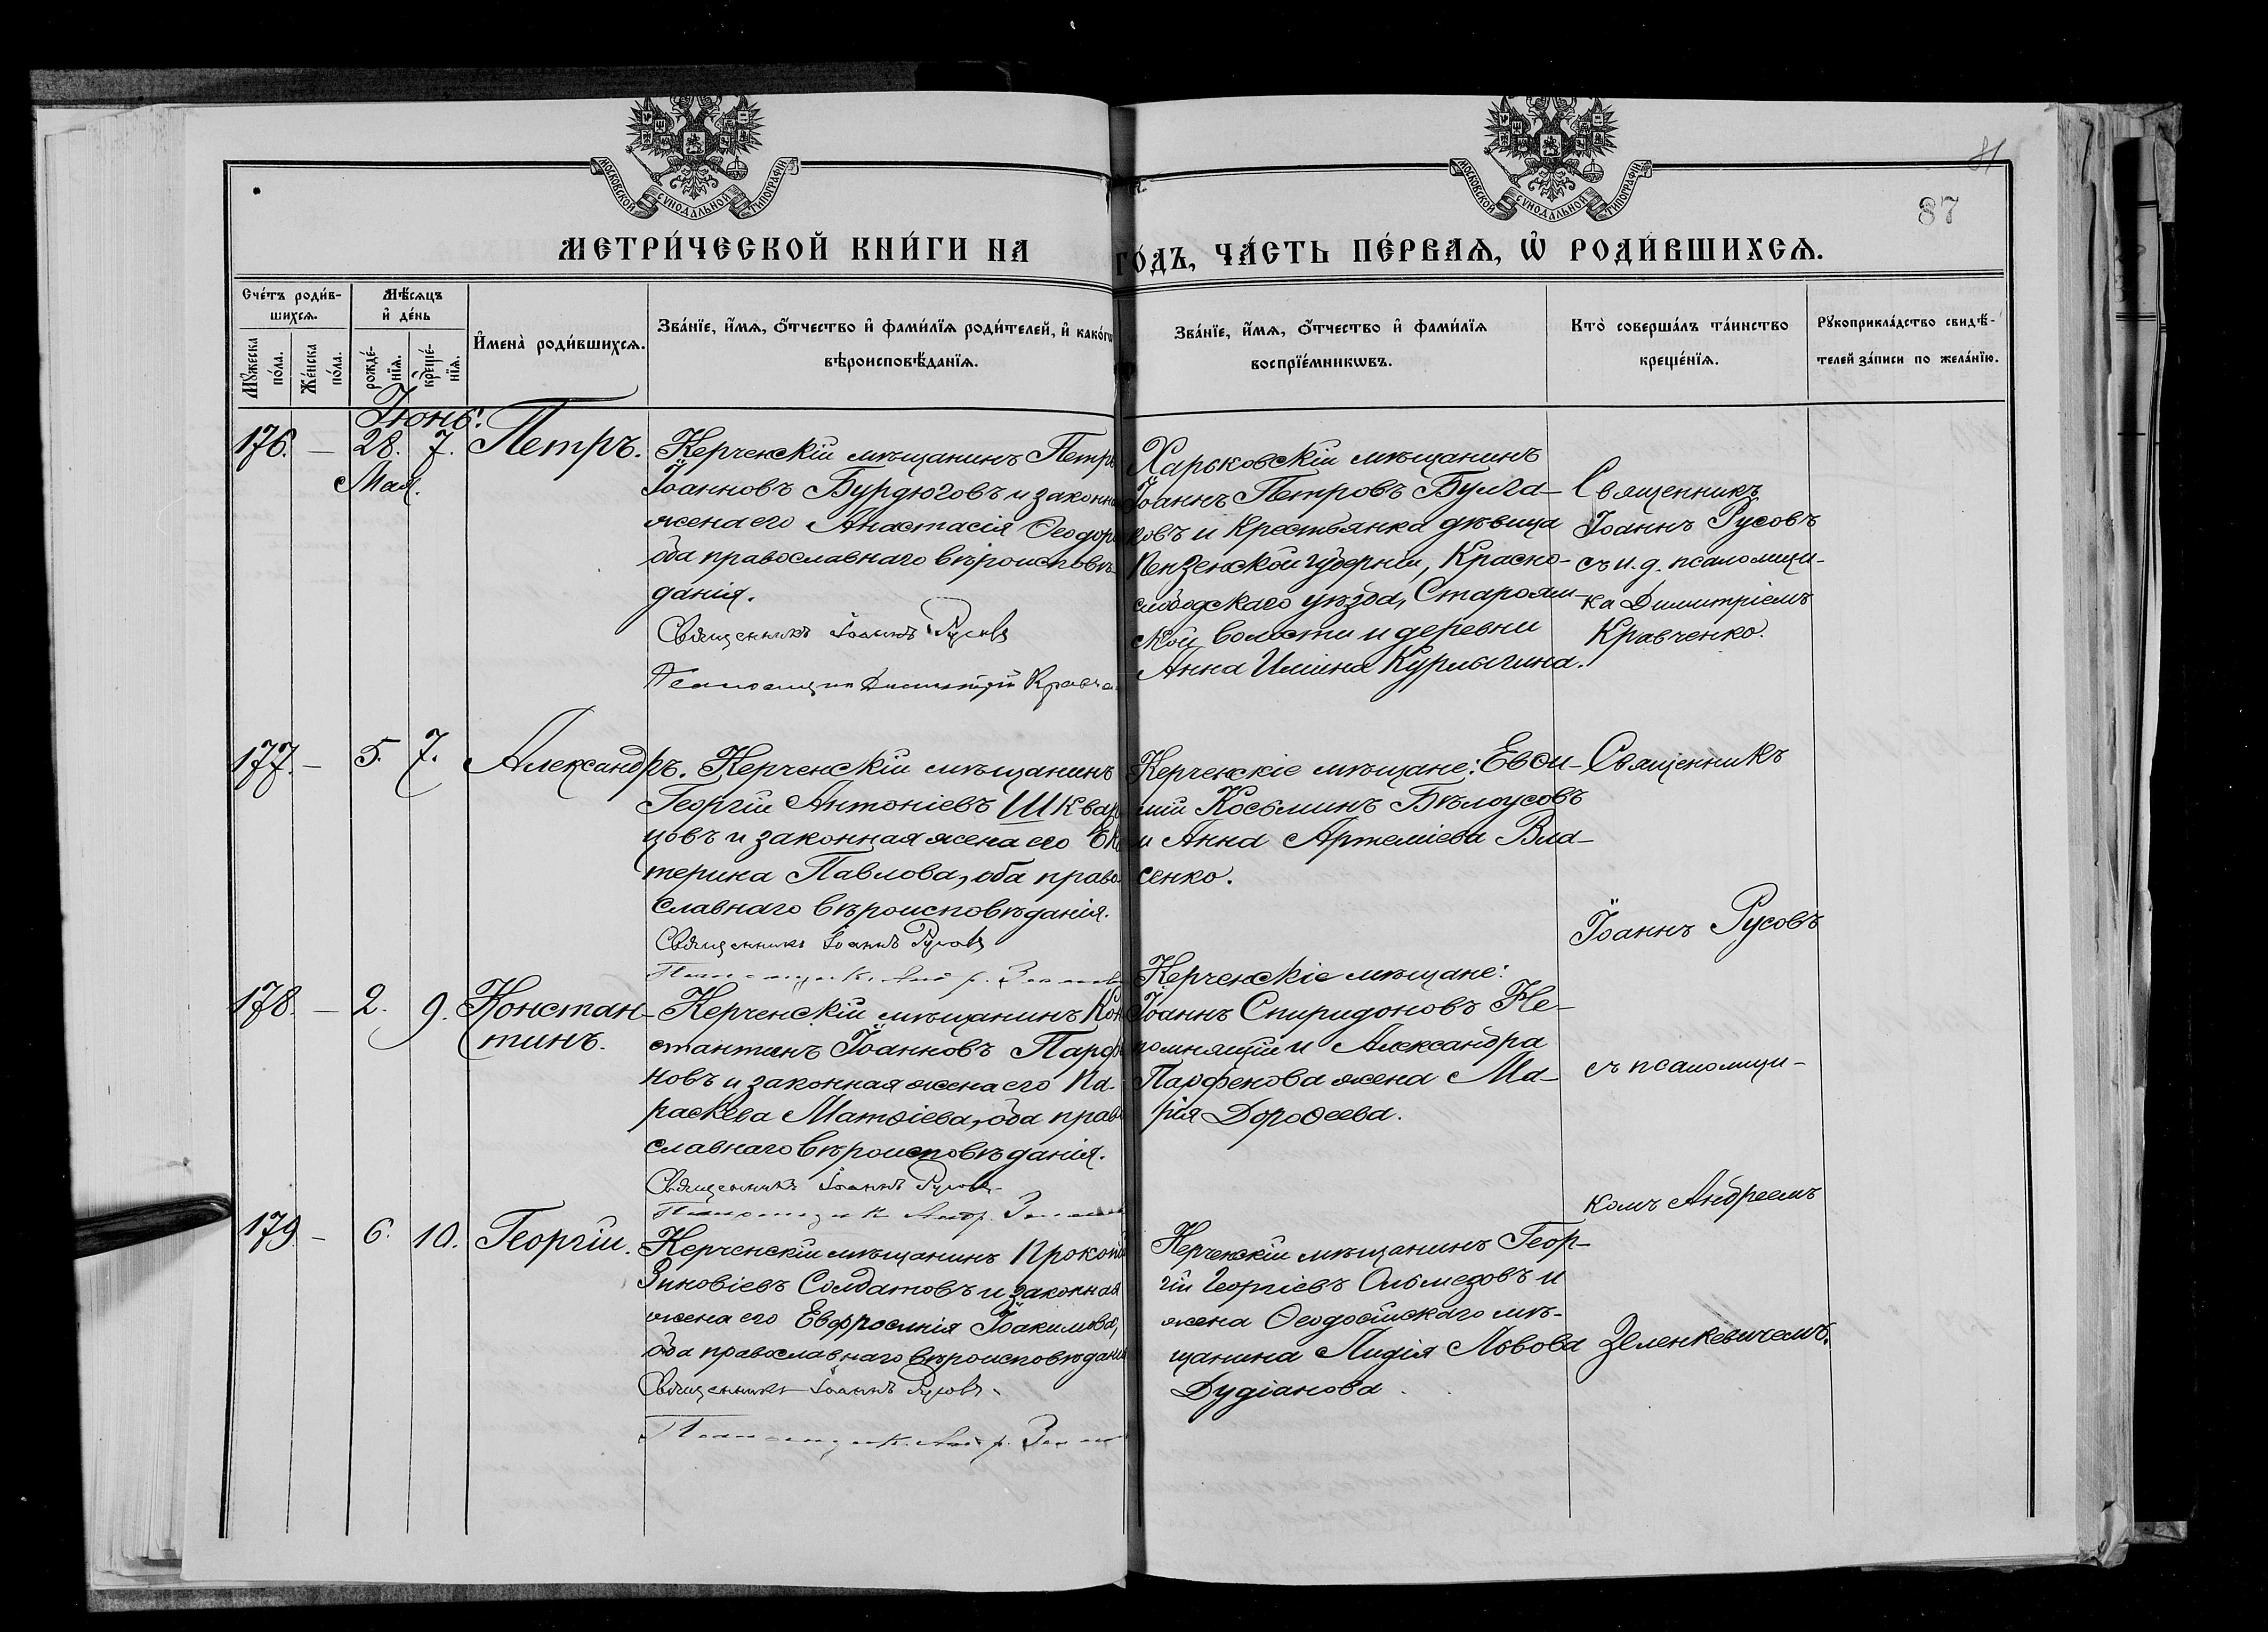 МОСКОВСКОЙ СУНОДАЛЬНОЙ ТИПОГРАФІИ
МОСКОВСКОЙ СУНОДАЛЬНОЙ ТИПОГРАФІИ
87
МЕТРИ́ЧЕСКОЙ КНИ́ГИ НА
ГО́ДЪ, ЧА́СТЬ ПЕ́РВАѦ, Ѡ҆ РОДИ́ВШИХСѦ.
Сче́тъ роди́в-
шихсѧ.
Мꙋ́жеска по́ла.
Же́нска по́ла.
Мѣ́сѧцъ
и҆ де́нь
рожде́-
нїѧ.
креще́-
нїѧ.
И҆мена̀ роди́вшихсѧ.
Зва́нїе, и҆́мѧ, ѻ҆́тчество и҆ фами́лїѧ роди́телей, и҆ како́гѡ
вѣроисповѣ́данїѧ.
Зва́нїе, и҆́мѧ, ѻ҆́тчество и҆ фами́лїѧ
воспрїе́мникѡвъ.
Кто̀ соверша́лъ та́инство
креще́нїѧ.
Рꙋкоприкла́дство свидѣ́-
телей за́писи по жела́нїю.
Іюнь.
176. — 28. 7. Петръ.
Мая.
Керченскій мѣщанинъ Петръ
Іоанновъ Бурдюговъ и законная
жена его Анастасія Ѳеодоро
оба православнаго вѣроисповѣ-
данія.
Священникъ Іоаннъ Русовъ
Псаломщикъ Димитрій Кравче
Харьковскій мѣщанинъ
Іоаннъ Петровъ Булга-
ковъ и крестьянка дѣвица
Пензенской губерніи, Красно-
слободскаго уѣзда,
ской волости и деревни
Анна Ильина Курмыгина.
Священникъ
Іоаннъ Русовъ
съ и. д. псаломщи-
ка Димитріемъ
Кравченко.
177. — 5. 7. Александръ.
Керченскій мѣщанинъ
Георгій Антоніевъ Шквар
цовъ и законная жена его Ека
терина Павлова, оба право
славнаго вѣроисповѣданія.
Священникъ Іоаннъ Русовъ
Псаломщикъ Андр. Зеленке
Керченскіе мѣщане: Евѳи-
мій Косьминъ Бѣлоусовъ
и Анна Артеміева Вла-
сенко.
Священникъ
Іоаннъ Русовъ
178. — 2. 9. Констан-
тинъ.
Керченскій мѣщанинъ Кон
стантинъ Іоанновъ Парфе
новъ и законная жена его Па-
раскева Матѳіева, оба право
славнаго вѣроисповѣданія.
Священникъ Іоаннъ Русовъ
Псаломщикъ Андр. Зеленке
Керченскіе мѣщане:
Іоаннъ Спиридоновъ Не-
помнящій и Александра
Парфенова жена Ма-
рія Дороѳеева.
съ псаломщи-
комъ Андреемъ
179 — 6. 10. Георгій.
Керченскій мѣщанинъ Прокопій
Зиновіевъ Солдатовъ и законная
жена его Евфросинія Іоакимова,
оба православнаго вѣроисповѣданія
Священникъ Іоаннъ Русовъ.
Псаломщикъ Андр. Зеленке
Керченскій мѣщанинъ Геор-
гій Георгіевъ Ольмезовъ и
жена Ѳеодосійскаго мѣ-
щанина Лидія Львова
Дудіанова.
Зеленкевичемъ.